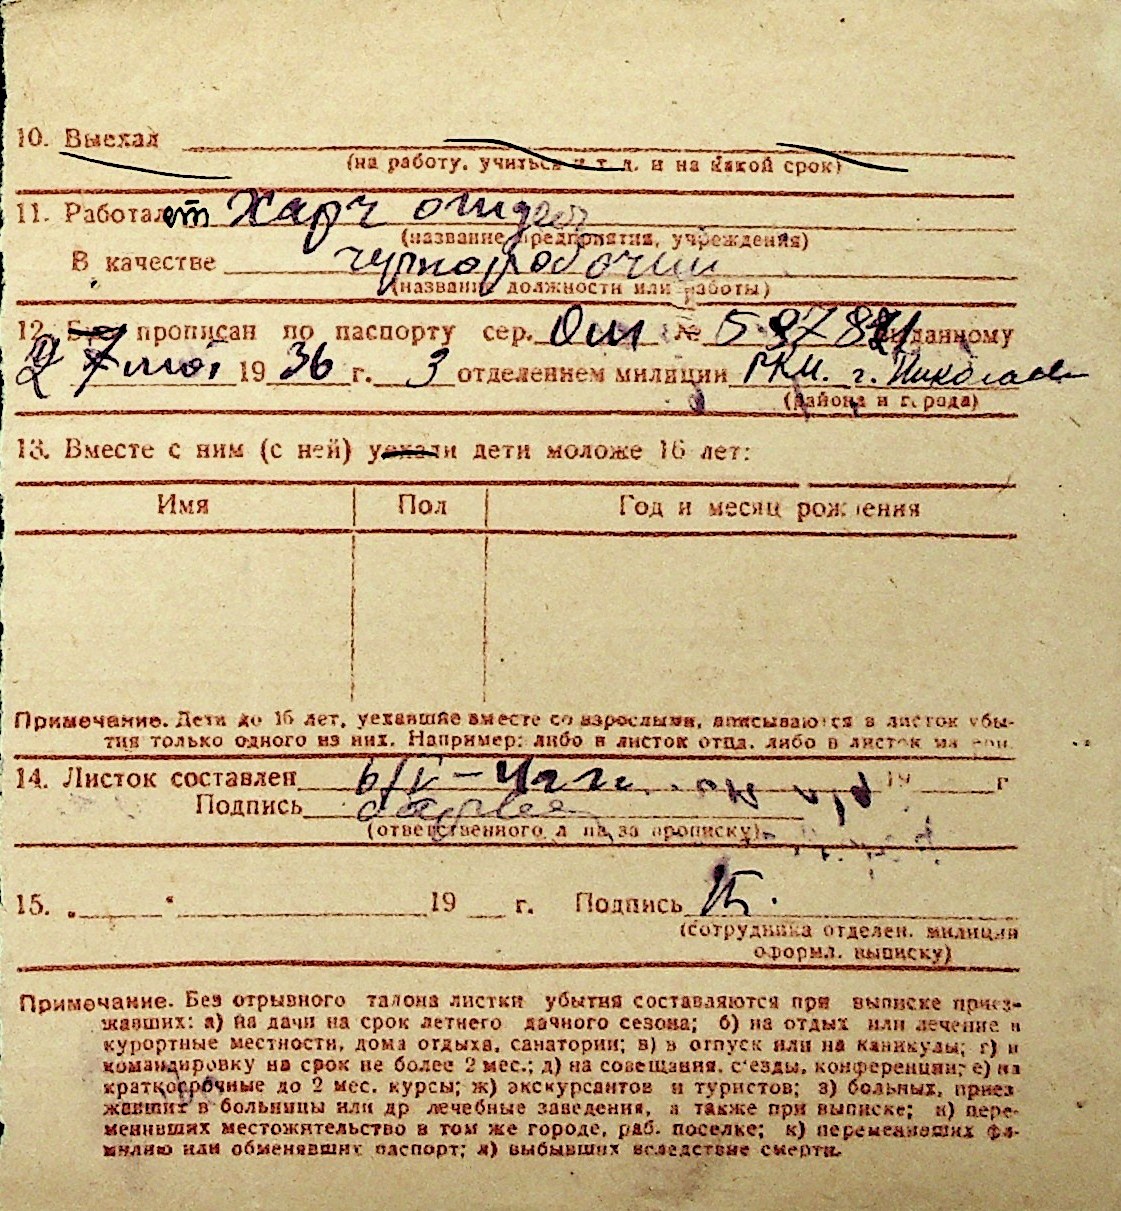 10. Выехал
(на работу, учиться и т. д. и на какой срок)
11. Работает Харч
(название предприятия, учреждения)
В качестве чернорабочий
(название должности или работы)
12. прописан по паспорту сер. ОШ № выданному
27 1936 г. 3 отделением милиции РКМ. г. Николаев
(района и города)
13. Вместе с ним (с ней) дети моложе 16 лет:
Имя Пол Год и месяц рождения
Примечание. Дети до 16 лет, уехавшие вместе со взрослыми, вписываются в листок убы-
тия только одного из них. Например: либо в листок отца, либо в листок матери.
14. Листок составлен 19 г
Подпись
(ответственного лица за прописку)
15. „ “ 19 г. Подпись
(сотрудника отделен. милиции
оформл. выписку)
Примечание. Без отрывного талона листки убытия составляются при выписке приез-
жавших: а) на дачи на срок летнего дачного сезона; б) на отдых или лечение в
курортные местности, дома отдыха, санатории; в) в отпуск или на каникулы; г) в
командировку на срок не более 2 мес.; д) на совещания, с'езды, конференции; е) на
краткосрочные до 2 мес. курсы; ж) экскурсантов и туристов; з) больных, приез-
жавших в больницы или др лечебные заведения, а также при выписке; и) пере-
менивших местожительство в том же городе, раб. поселке; к) переменивших фа-
милию или обменявших паспорт; л) выбывших вследствие смерти.